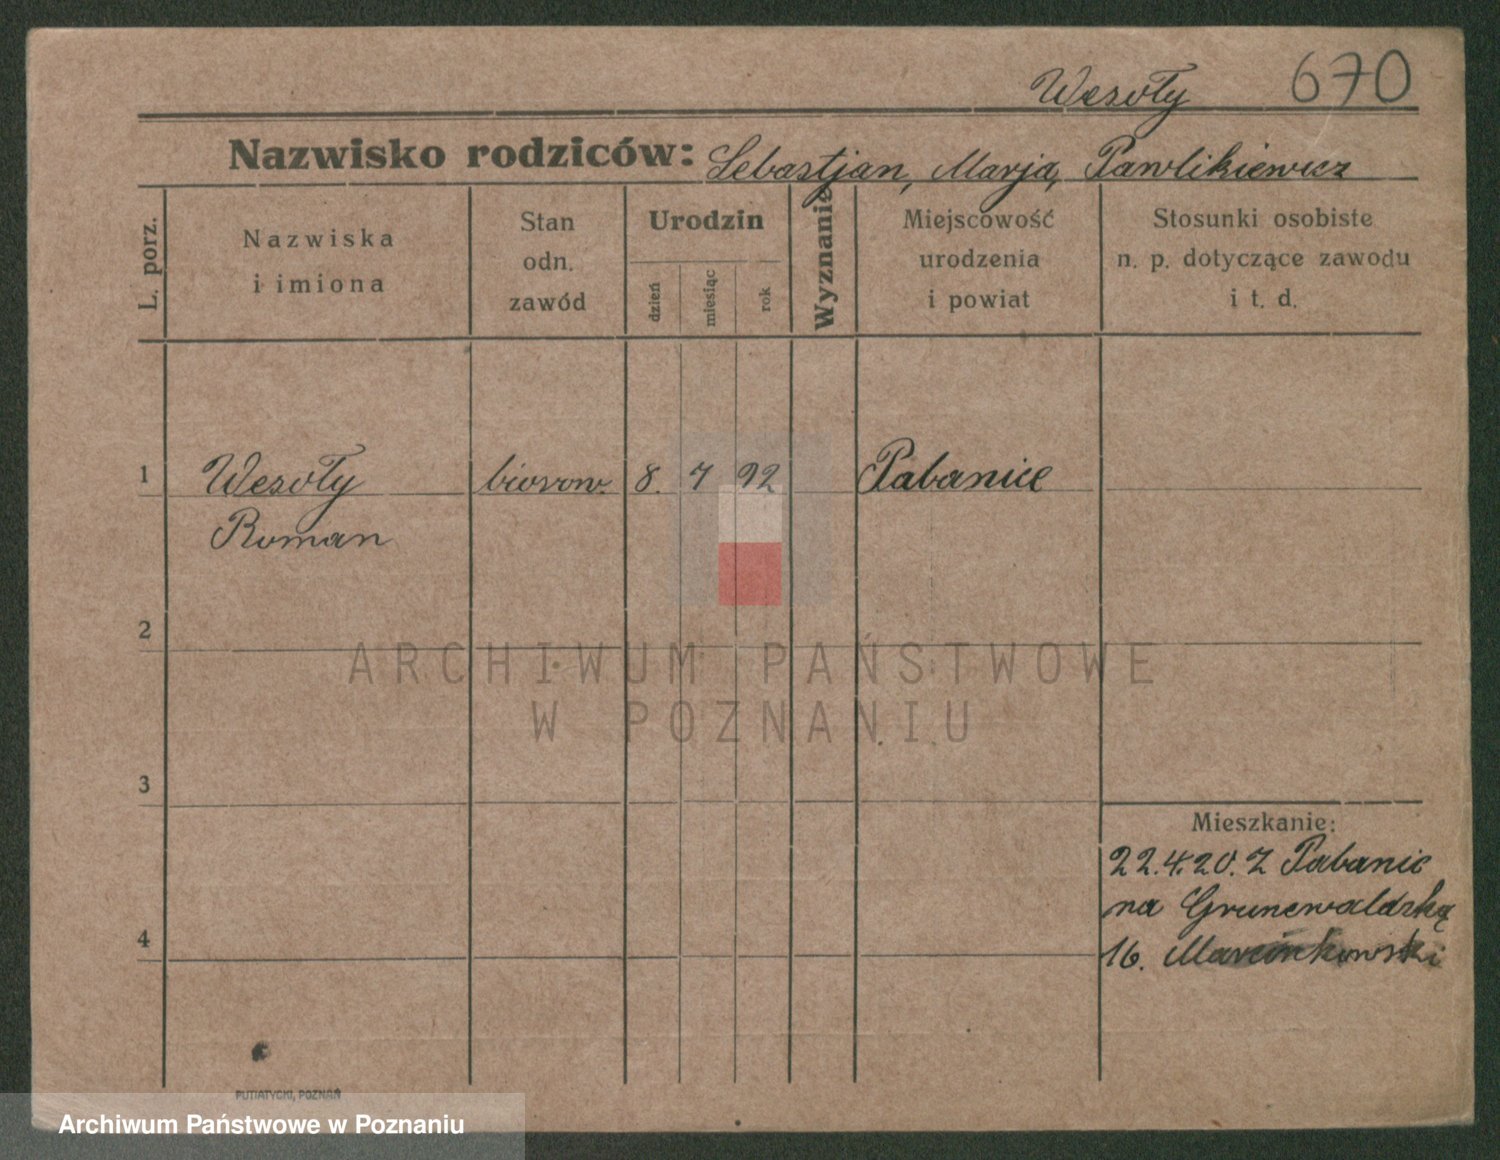 Wesoły 670
Nazwisko rodziców: Sebastjan, Marja, Pawlikiewicz
L. porz.
Nazwiska
i imiona
Stan
odn.
zawód
Urodzin
dzień
miesiąc
rok
Wyznanie
Miejscowość
urodzenia
i powiat
Stosunki osobiste
n. p. dotyczące zawodu
i t. d.
1 Wesoły biurow. 8. 7 92 Pabanice
Roman
2
ARCHIWUM PAŃSTWOWE
W POZNANIU
3
Mieszkanie:
22.4.20. Z Pabanic
na Grunewaldzką
4
16. Marcinkowski
PUTIATYCKI, POZNAŃ
Archiwum Państwowe w Poznaniu